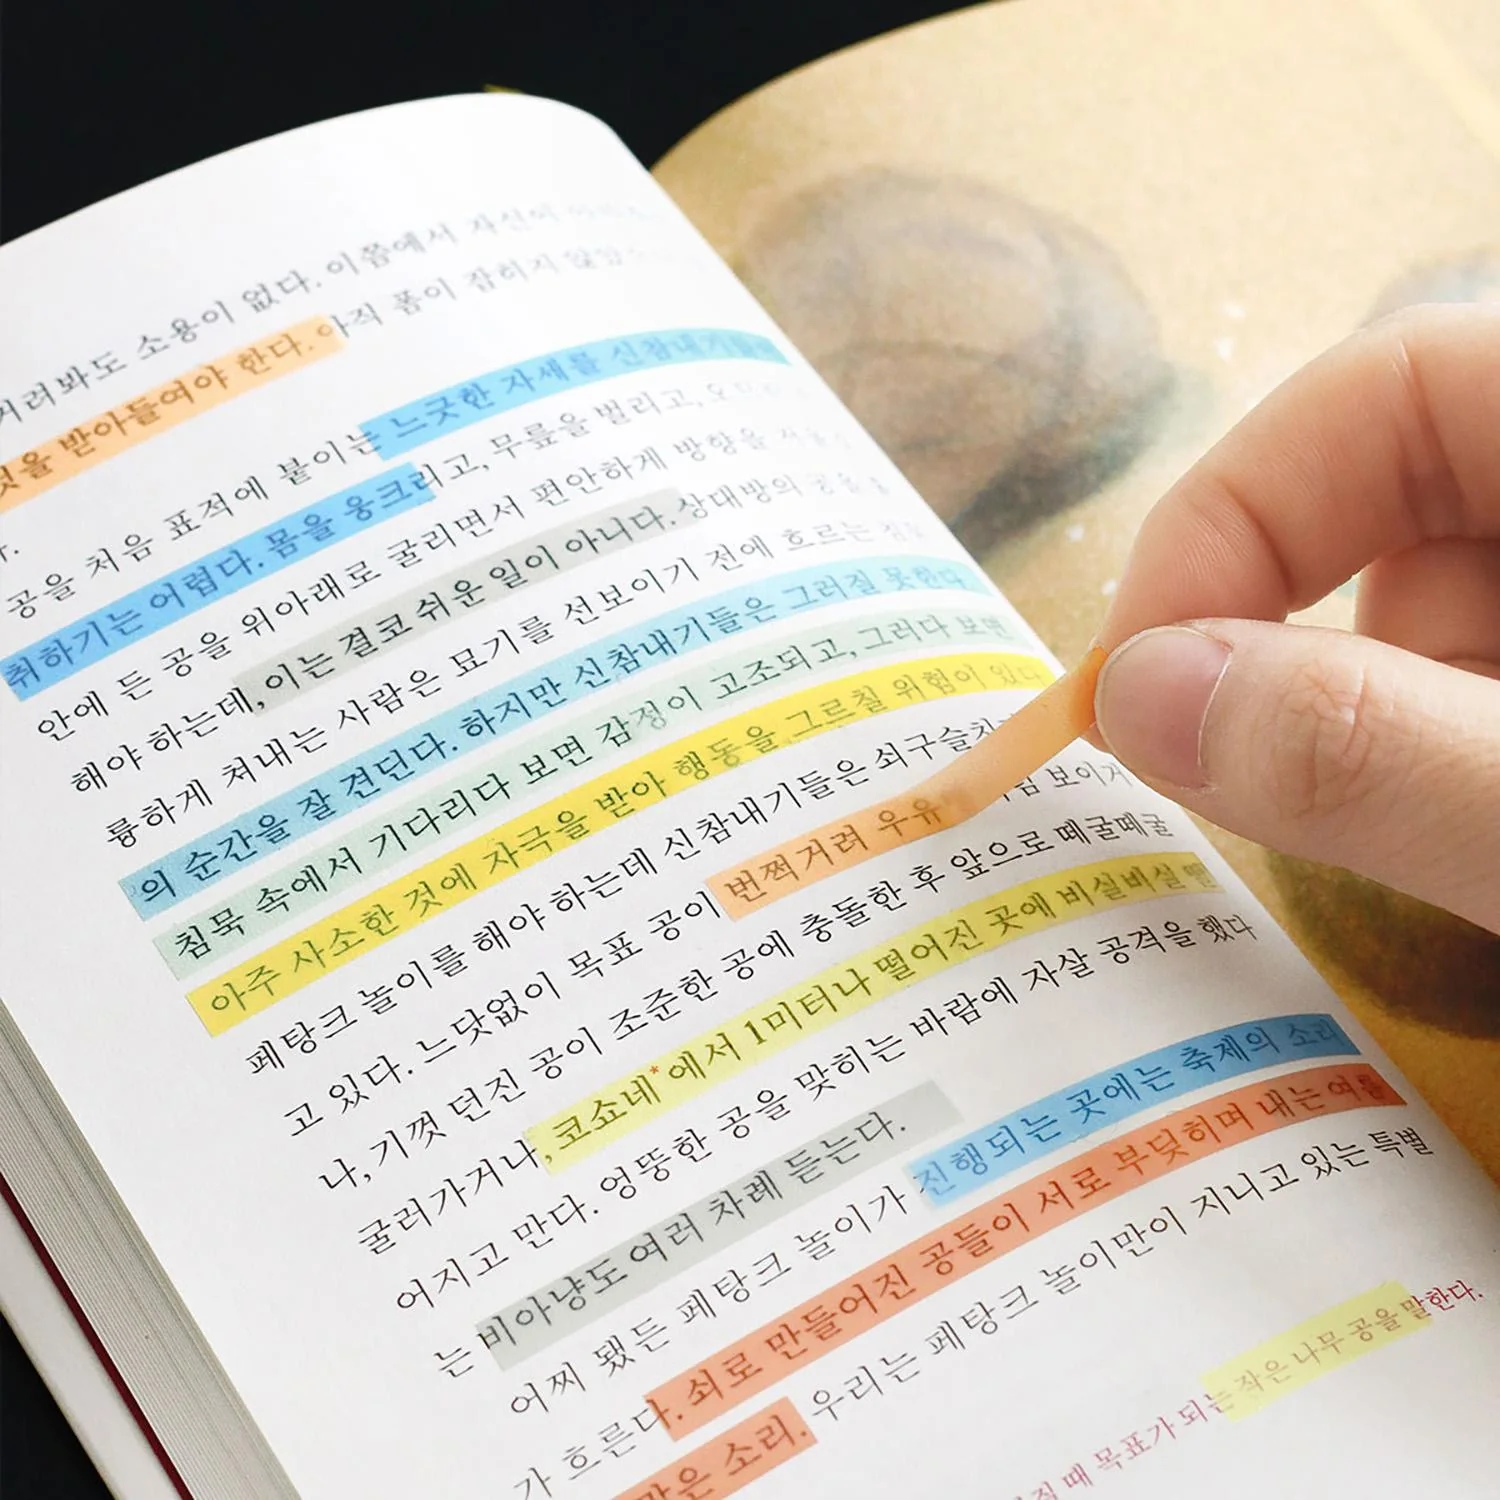 거려봐도 소용이 없다. 이쯤에서 자신이
것을 받아들여야 한다. 아직 폼이 잡히지 않았
다.
공을 처음 표적에 붙이는 느긋한 자세를 신참내기들이
취하기는 어렵다. 몸을 웅크리고, 무릎을 벌리고,
안에 든 공을 위아래로 굴리면서 편안하게 방향을
해야 하는데, 이는 결코 쉬운 일이 아니다. 상대방의 공을
륭하게 쳐내는 사람은 묘기를 선보이기 전에 흐르는
의 순간을 잘 견딘다. 하지만 신참내기들은 그러질 못한다.
침묵 속에서 기다리다 보면 감정이 고조되고, 그러다 보면
아주 사소한 것에 자극을 받아 행동을 그르칠 위험이 있다.
페탕크 놀이를 해야 하는데 신참내기들은 쇠구슬치기
고 있다. 느닷없이 목표 공이 번쩍거려 우유 보이거
나, 기껏 던진 공이 조준한 공에 충돌한 후 앞으로 떼굴떼굴
굴러가거나, 코쇼네*에서 1미터나 떨어진 곳에 비실비실 떨
어지고 만다. 엉뚱한 공을 맞히는 바람에 자살 공격을 했다
는 비아냥도 여러 차례 듣는다.
어찌 됐든 페탕크 놀이가 진행되는 곳에는 축제의 소리
가 흐른다. 쇠로 만들어진 공들이 서로 부딪히며 내는 여름
같은 소리. 우리는 페탕크 놀이만이 지니고 있는 특별
질 때 목표가 되는 작은 나무 공을 말한다.